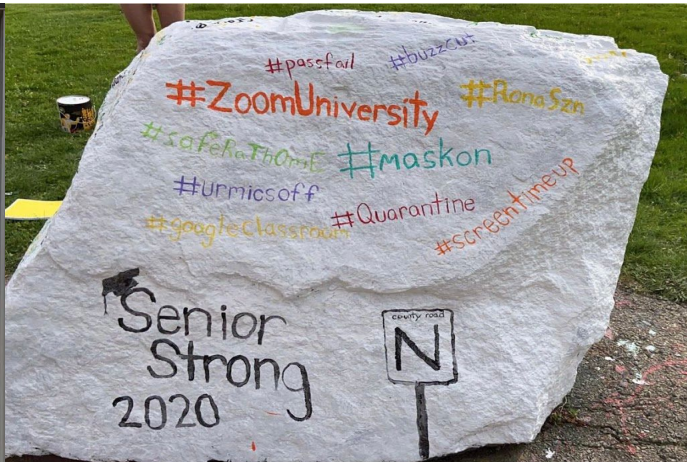 #passfail #buzzcut
#ZoomUniversity #RonaSzn
#saferathome #maskon
#urmicsoff
#Quarantine
#googleclassroom
#screentimeup
Senior
Strong
2020
county road
N